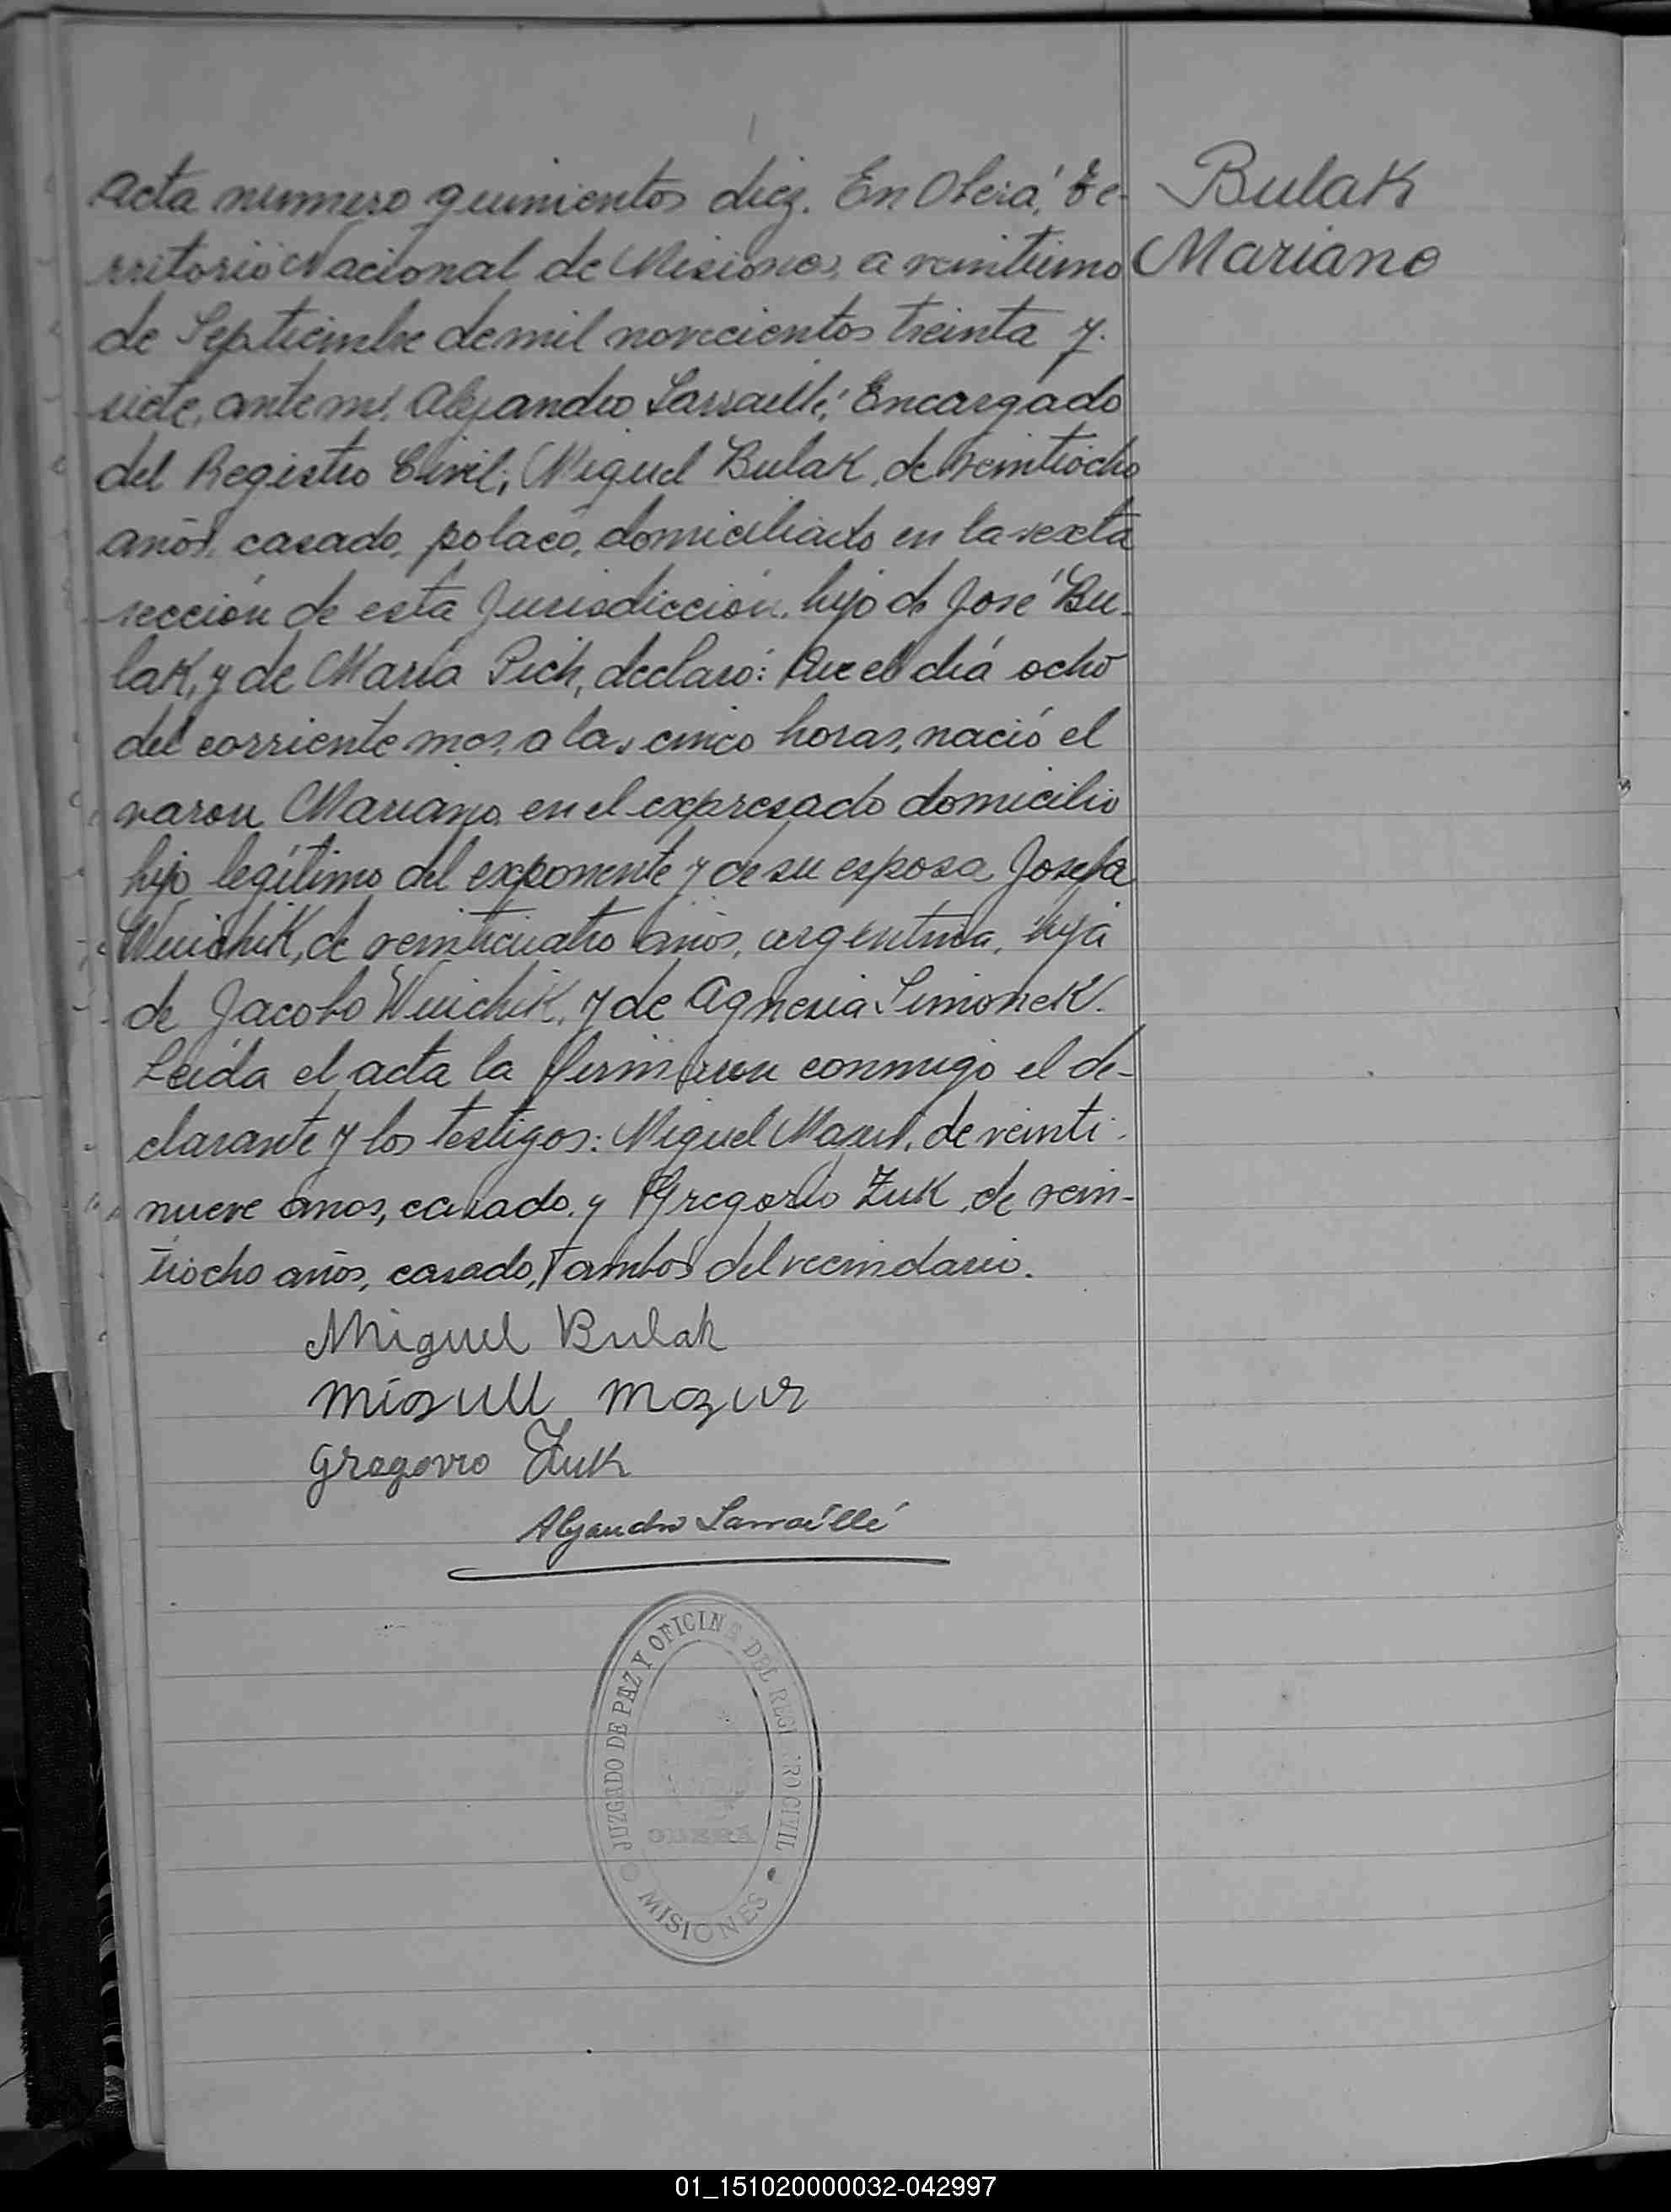 Bulak
Mariano
Acta numero quinientos diez. En Oberá, Te-
rritorio Nacional de Misiones, a veintiuno
de Septiembre de mil novecientos treinta y
siete, ante mi, Alejandro Larraillé, Encargado
del Registro Civil; Miguel Bulak, de veintiocho
años, casado, polaco, domiciliado en la sexta
sección de esta Jurisdicción, hijo de José Bu-
lak, y de María Pich, declaró: Que el día ocho
del corriente mes, a las cinco horas, nació el
varon Mariano en el expresado domicilio
hijo legítimo del exponente y de su esposa Josefa
Wuichik, de veinticuatro años, argentina, hija
de Jacobo Wuichik, y de Agnesia Simonek.
Leída el acta la firmaron conmigo el de-
clarante y los testigos: Miguel Mazur, de veinti-
nueve años, casado, y Gregorio Zuk, de vein-
tiocho años, casado, ambos del vecindario.
Miguel Bulak
Miguel Mazur
Gregorio Zuk
Alejandro Larraillé
JUZGADO DE PAZ Y OFICINA DEL REGI RO CIVIL
OBERÁ
MISIONES
01_151020000032-042997